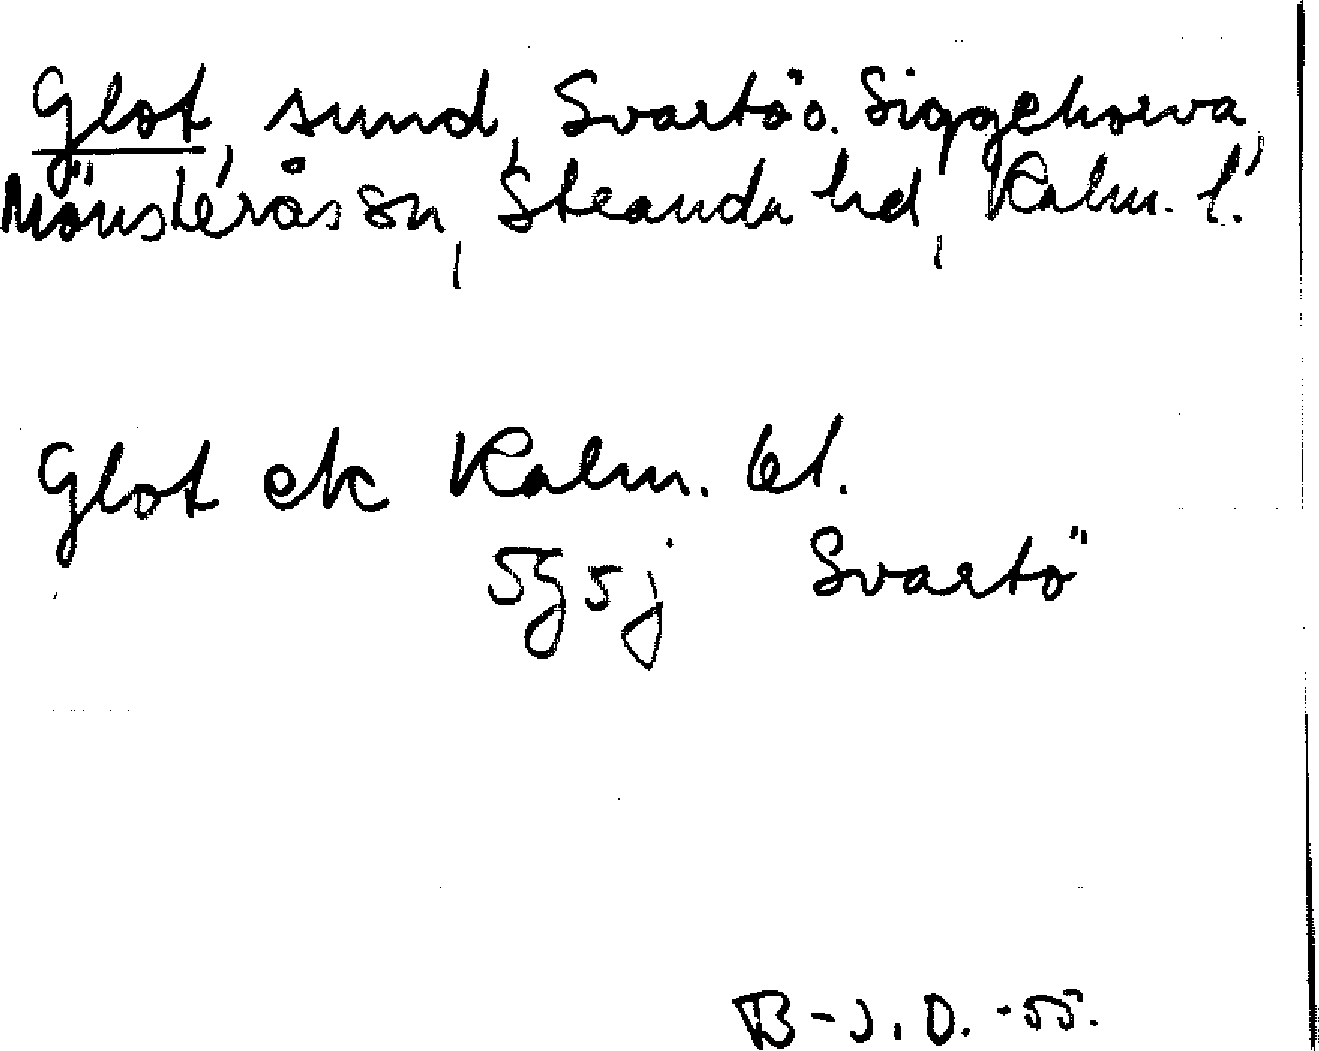 Glot, sund, Svartö o. Siggehorva,
Mönsterås sn, Stranda hd, Kalm. l.
Glot ek Kalm. bl.
5g5j Svartö
B-J.D. -55.